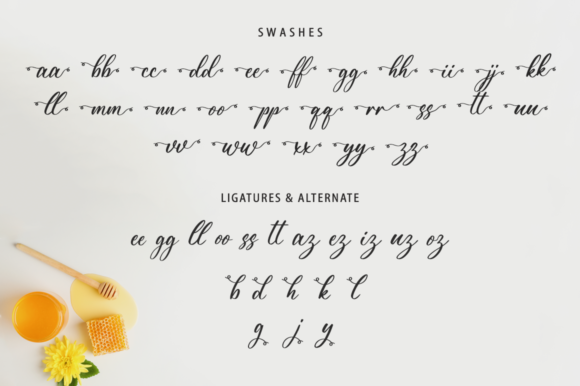 SWASHES
aa bb cc dd ee ff gg hh ii jj kk
ll mm nn oo pp qq rr ss tt uu
vv ww xx yy zz
LIGATURES & ALTERNATE
ee gg ll oo ss tt az ez iz uz oz
b d h k l
g j y